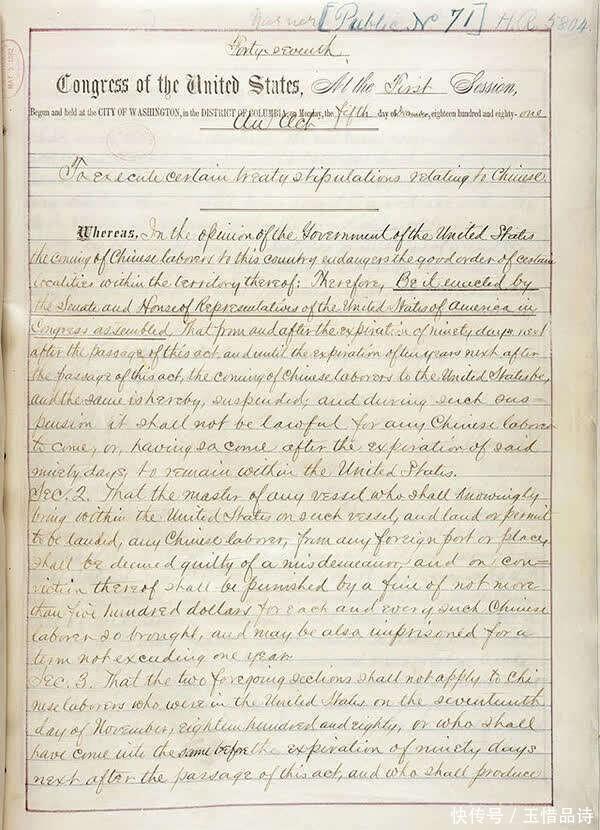 [Public No 71] H.R. 5804.
Forty-seventh
Congress of the United States, At the First Session,
Begun and held at the CITY OF WASHINGTON, in the DISTRICT OF COLUMBIA, on Monday, the fifth day of December, eighteen hundred and eighty-one
An Act
To execute certain treaty stipulations relating to Chinese.
Whereas, In the opinion of the Government of the United States
the coming of Chinese laborers to this country endangers the good order of certain
localities within the territory thereof: Therefore, Be it enacted by
the Senate and House of Representatives of the United States of America in
Congress assembled, That from and after the expiration of ninety days next
after the passage of this act, and until the expiration of ten years next after
the passage of this act, the coming of Chinese laborers to the United States be,
and the same is hereby, suspended; and during such sus=
pension it shall not be lawful for any Chinese laborer
to come, or, having so come after the expiration of said
ninety days, to remain within the United States.
SEC. 2. That the master of any vessel who shall knowingly
bring within the United States on such vessel, and land or permit
to be landed, any Chinese laborer, from any foreign port or place,
shall be deemed guilty of a misdemeanor, and on con=
viction thereof shall be punished by a fine of not more
than five hundred dollars for each and every such Chinese
laborer so brought, and may be also imprisoned for a
term not exceeding one year.
SEC. 3. That the two foregoing sections shall not apply to Chi
nese laborers who were in the United States on the seventeenth
day of November, eighteen hundred and eighty, or who shall
have come into the same before the expiration of ninety days
next after the passage of this act, and who shall produce
快传号 / 玉惜品诗